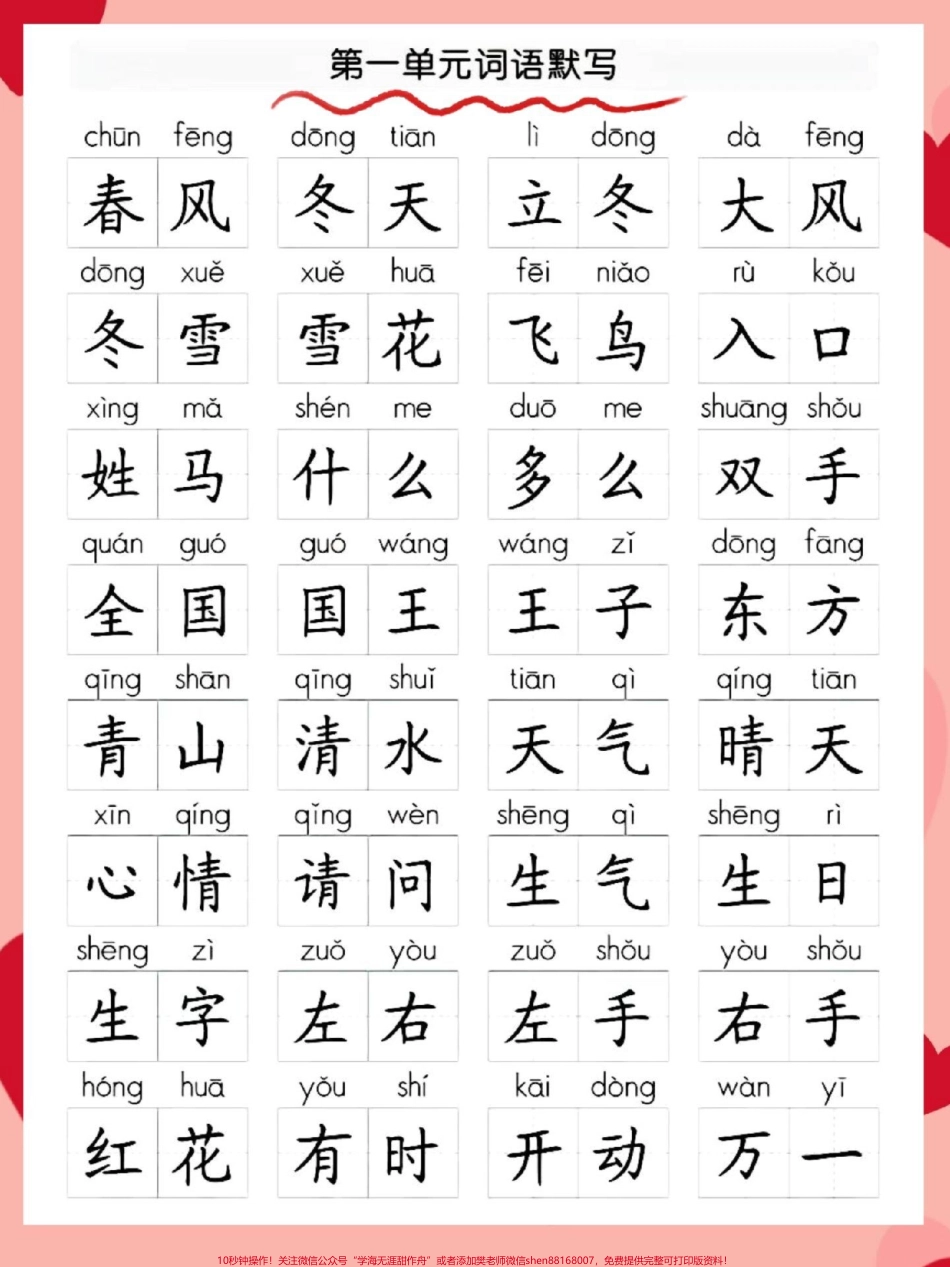 第一单元词语默写
chūn fēng dōng tiān lì dōng dà fēng
春风 冬天 立冬 大风
dōng xuě xuě huā fēi niǎo rù kǒu
冬雪 雪花 飞鸟 入口
xìng mǎ shén me duō me shuāng shǒu
姓马 什么 多么 双手
quán guó guó wáng wáng zǐ dōng fāng
全国 国王 王子 东方
qīng shān qīng shuǐ tiān qì qíng tiān
青山 清水 天气 晴天
xīn qíng qǐng wèn shēng qì shēng rì
心情 请问 生气 生日
shēng zì zuǒ yòu zuǒ shǒu yòu shǒu
生字 左右 左手 右手
hóng huā yǒu shí kāi dòng wàn yī
红花 有时 开动 万一
10秒钟操作！关注微信公众号“学海无涯甜作舟”或者添加樊老师微信shen88168007，免费提供完整可打印版资料！